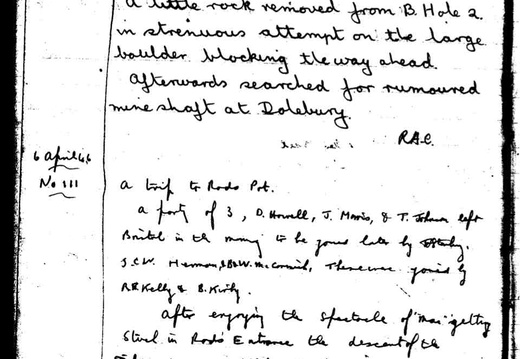 A little rock removed from B. Hole 2.
in strenuous attempt on the large
boulder blocking the way ahead.
Afterwards searched for rumoured
mine shaft at Dolebury.
R.A.C.
6 April 46
No 111
A trip to Rods Pot.
A party of 3, D. Howell, J. Morris, & T. left
Bristol in the morning to be joined later by
& B.W. McCormick, These were joined by
R.R. Kelly & B. Kirby.
After enjoying the spectacle of "Mac" getting
Stuck in Rod's Entrance the descent of the